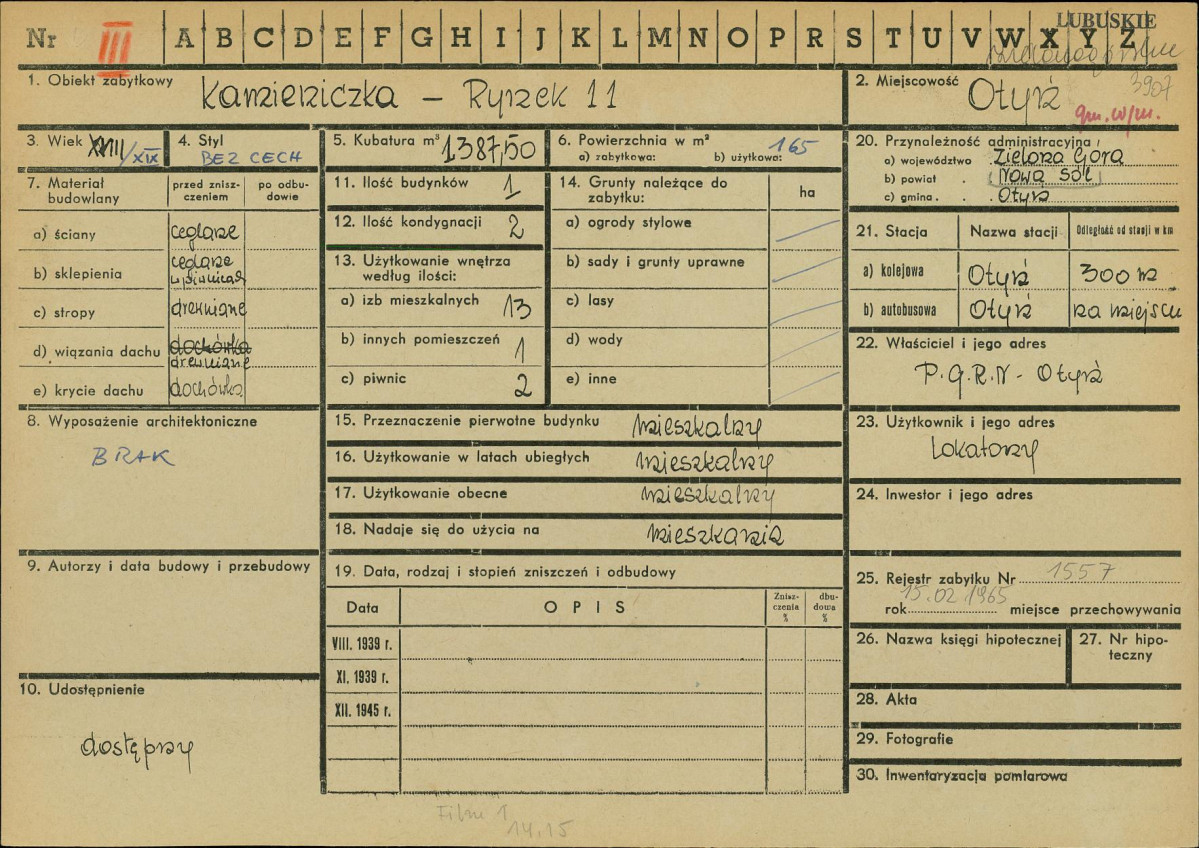 LUBUSKIE
Nr III A B C D E F G H I J K L M N O P R S T U V W X Y Z
3907
1. Obiekt zabytkowy Kamieniczka – Rynek 11
2. Miejscowość Otyń
gm. w/m.
3. Wiek XVIII/XIX
4. Styl BEZ CECH
5. Kubatura m³ 1387,50
6. Powierzchnia w m²
a) zabytkowa: b) użytkowa: 165
7. Materiał budowlany
przed zniszczeniem
po odbudowie
a) ściany ceglane
b) sklepienia ceglane w piwnicach
c) stropy drewniane
d) wiązania dachu dachówka drewniane
e) krycie dachu dachówka
8. Wyposażenie architektoniczne
BRAK
9. Autorzy i data budowy i przebudowy
10. Udostępnienie
dostępny
11. Ilość budynków 1
12. Ilość kondygnacji 2
13. Użytkowanie wnętrza
według ilości:
a) izb mieszkalnych 13
b) innych pomieszczeń 1
c) piwnic 2
14. Grunty należące do
zabytku:
ha
a) ogrody stylowe
b) sady i grunty uprawne
c) lasy
d) wody
e) inne
15. Przeznaczenie pierwotne budynku mieszkalny
16. Użytkowanie w latach ubiegłych mieszkalny
17. Użytkowanie obecne mieszkalny
18. Nadaje się do użycia na mieszkania
19. Data, rodzaj i stopień zniszczeń i odbudowy
Data OPIS Zniszczenia % dbudowa %
VIII. 1939 r.
XI. 1939 r.
XII. 1945 r.
20. Przynależność administracyjna
a) województwo Zielona Góra
b) powiat Nowa Sól
c) gmina Otyń
21. Stacja Nazwa stacji Odległość od stacji w km
a) kolejowa Otyń 300 m
b) autobusowa Otyń na miejscu
22. Właściciel i jego adres
P.G.R.N - Otyń
23. Użytkownik i jego adres
Lokatorzy
24. Inwestor i jego adres
25. Rejestr zabytku Nr 1557
rok 15.02.1965 miejsce przechowywania
26. Nazwa księgi hipotecznej
27. Nr hipoteczny
28. Akta
29. Fotografie
30. Inwentaryzacja pomiarowa
14.15